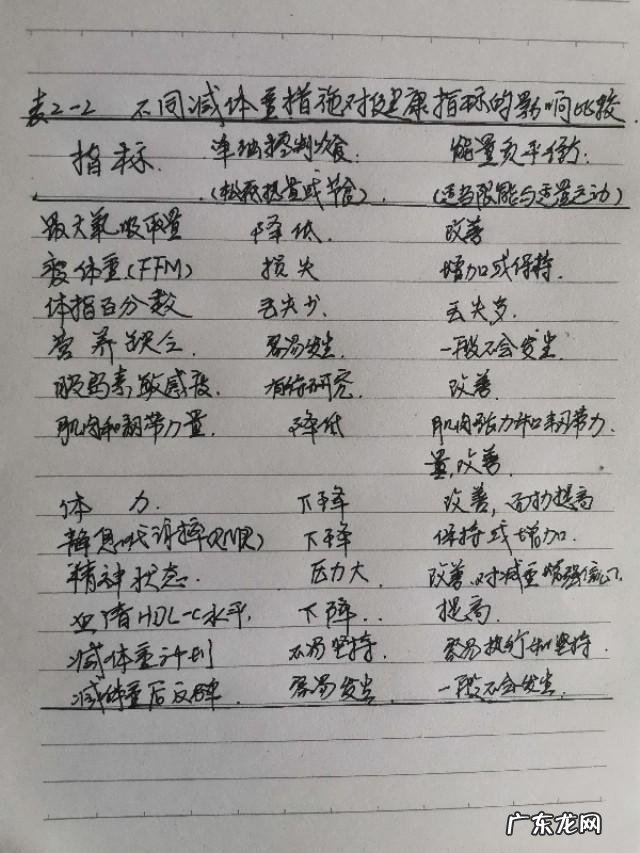 表2-2 不同减体重措施对健康指标的影响比较
指标 单纯控制饮食 能量负平衡
(低热量或节食) (适当限能与适量运动)
最大氧吸取量 降低 改善
瘦体重(FFM) 损失 增加或保持
体脂百分数 丢失少 丢失多
营养缺乏 容易发生 一般不会发生
胰岛素敏感度 有待研究 改善
肌肉和韧带力量 降低 肌肉张力和韧带力
量改善
体力 下降 改善,
静息代谢率(RMR) 下降 保持或增加
精神状态 压力大 改善,对减重
血清HDL-C水平 下降 提高
减体重计划 不易坚持 容易执行和坚持
减体重后反弹 容易发生 一般不会发生
广东龙网